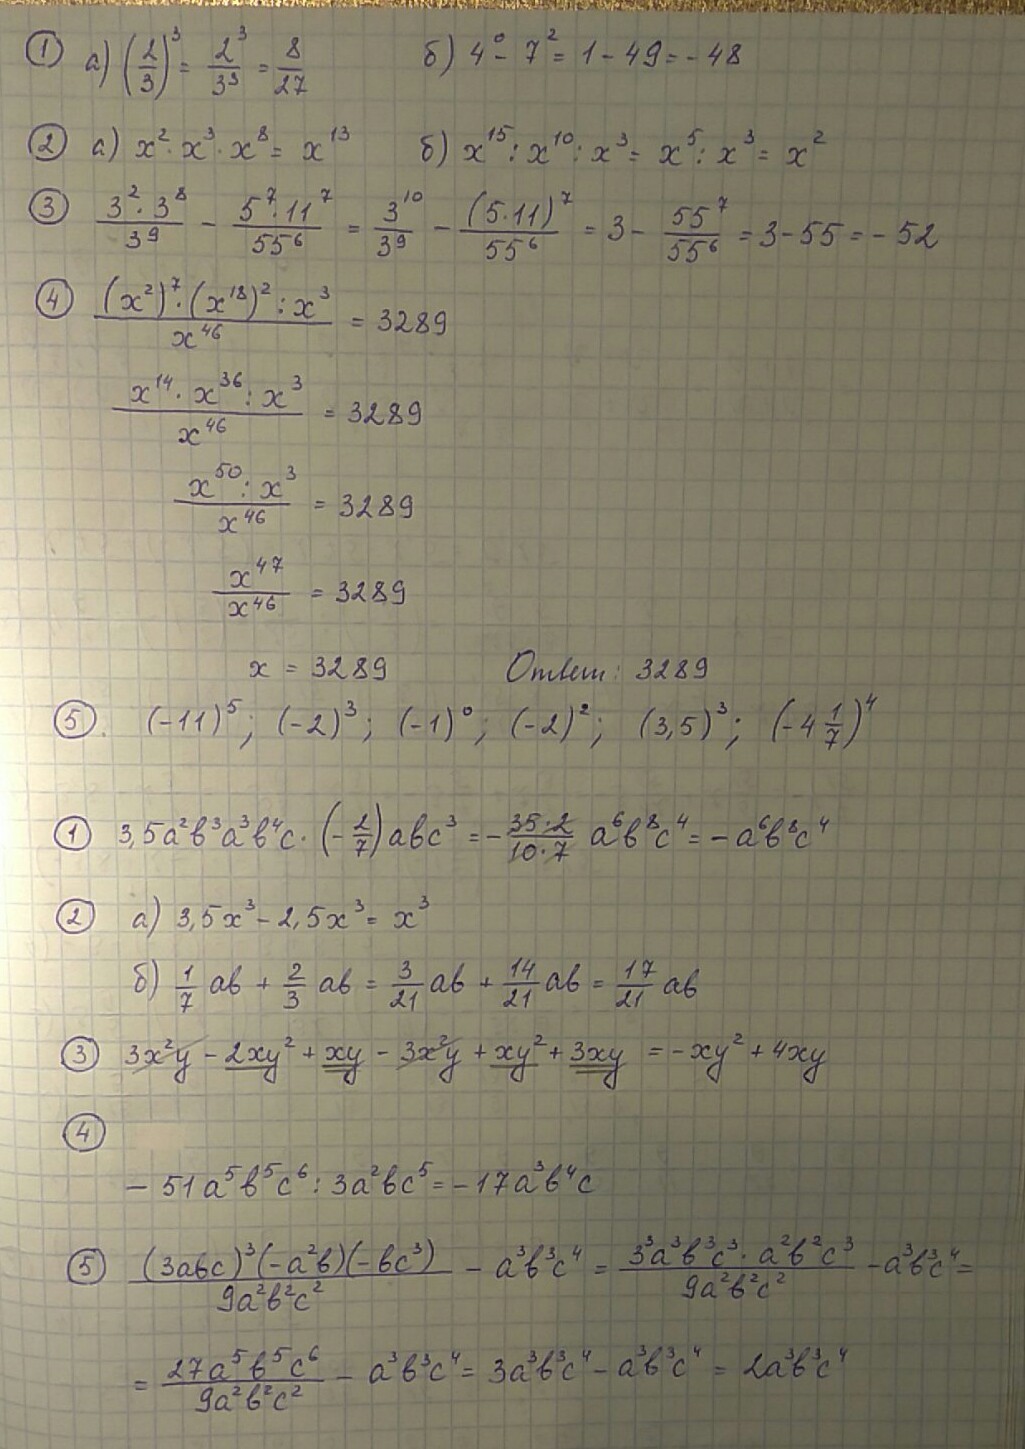 ① а) (2/3)³ = 2³/3³ = 8/27 б) 4⁰ - 7² = 1 - 49 = - 48
② а) x² · x³ · x⁸ = x¹³ б) x¹⁵ : x¹⁰ : x³ = x⁵ : x³ = x²
③ 3² · 3⁸/3⁹ - 5⁷ · 11⁷/55⁶ = 3¹⁰/3⁹ - (5·11)⁷/55⁶ = 3 - 55⁷/55⁶ = 3 - 55 = - 52
④ (x²)⁷ · (x¹⁸)² : x³/x⁴⁶ = 3289
x¹⁴ · x³⁶ : x³/x⁴⁶ = 3289
x⁵⁰ : x³/x⁴⁶ = 3289
x⁴⁷/x⁴⁶ = 3289
x = 3289 Ответ: 3289
⑤. (-11)⁵; (-2)³; (-1)⁰; (-2)²; (3,5)³; (-4 1/7)⁴
① 3,5a²b³a³b⁴c · (-2/7)abc³ = - 35·2/10·7 a⁶b⁸c⁴ = - a⁶b⁸c⁴
② а) 3,5x³ - 2,5x³ = x³
б) 1/7 ab + 2/3 ab = 3/21 ab + 14/21 ab = 17/21 ab
③ 3x²y - 2xy² + xy - 3x²y + xy² + 3xy = - xy² + 4xy
④
- 51a⁵b⁵c⁶ : 3a²bc⁵ = - 17a³b⁴c
⑤ (3abc)³(-a²b)(-bc³)/9a²b²c² - a³b³c⁴ = 3³a³b³c³ · a²b²c³/9a²b²c² - a³b³c⁴ =
= 27a⁵b⁵c⁶/9a²b²c² - a³b³c⁴ = 3a³b³c⁴ - a³b³c⁴ = 2a³b³c⁴